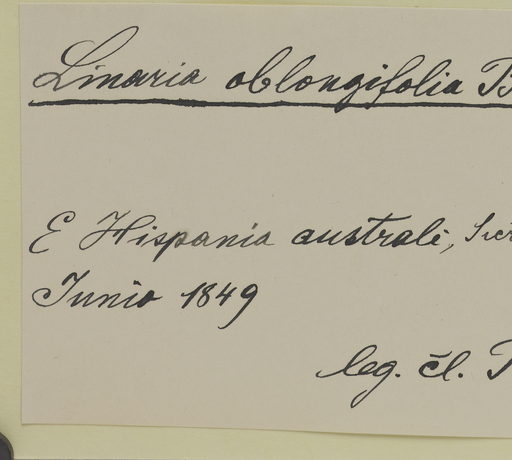 Linaria oblongifolia B
E Hispania australi, Sier
Junio 1849
leg. čl.